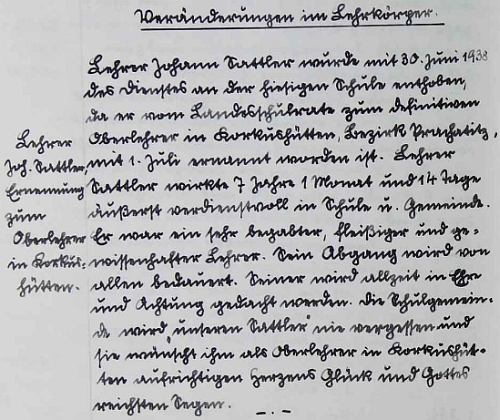 Veränderungen im Lehrkörper.
Lehrer Johann Sattler wurde mit 30. Juni 1938
des Dienstes an der hiesigen Schule enthoben,
da er vom Landesschulrate zum definitiven
Oberlehrer in Korkushütten, Bezirk Prachatitz,
mit 1. Juli ernannt worden ist. Lehrer
Sattler wirkte 7 Jahre 1 Monat und 14 Tage
äußerst verdienstvoll in Schule u. Gemeinde.
Er war ein sehr begabter, fleißiger und ge-
wissenhafter Lehrer. Sein Abgang wird von
allen bedauert. Seiner wird allzeit in Ehre
und Achtung gedacht werden. Die Schulgemein-
de wird "unseren Sattler" nie vergessen und
sie wünscht ihm als Oberlehrer in Korkushüt-
ten aufrichtigen Herzens Glück und Gottes
reichsten Segen.
Lehrer
Joh. Sattler,
Ernennung
zum
Oberlehrer
in Korkus-
hütten.